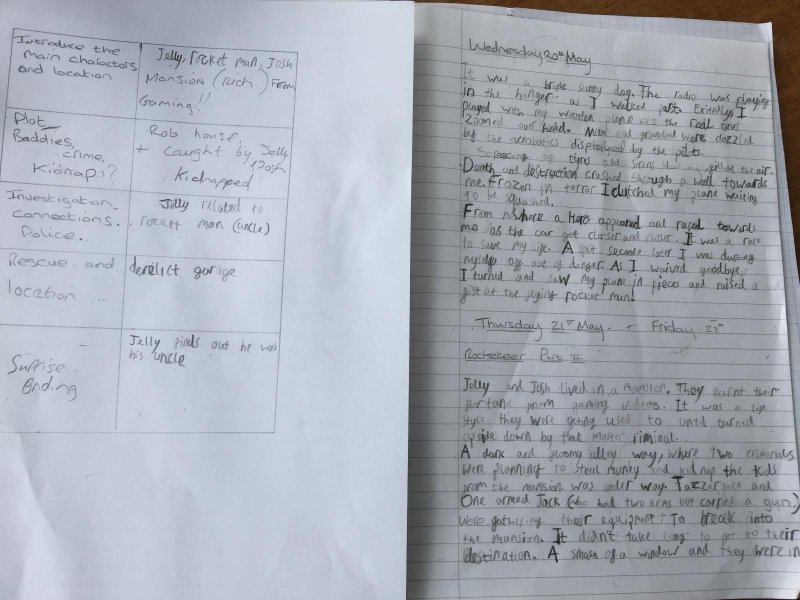 Introduce the
main charactors
and location
Jelly, rocket man, Josh
Mansion (rich) From
Gaming!!
Plot
Baddies,
crime,
Kidnap??
Rob house,
+ caught by Jelly
+ Josh.
Kidnapped!
Investigation,
connections.
Police..
Jelly related to
rocket man (uncle)
Rescue and
location ...
derelict garage
Surprise
Ending
Jelly finds out he was
his uncle
Wednesday 20th May
It was a bright sunny day. The radio was playing
in the hanger as I walked past. Exitedly, I
played with my wooden plane as the real ones
zoomed over head. Mum and grandad were dazzled
by the acrobatics displayed by the pilots.
Screeching of tyres and sirens filled the air.
Death and destruction crashed through a wall towards
me. Frozen in terror I clutched my plane waiting
to be squashed.
From nowhere a Hero appeared and raced towards
me as the car got closer and closer. It was a race
to save my life. A split seconde later I was dusting
myself off out of danger. As I waived goodbye,
I turned and saw my plane in pieces and raised a
fist at the flying rocket man!
Thursday 21st May. + Friday 22nd
Rocketeer Part II
Jelly and Josh lived in a mansion. They earnt their
fortune from gaming videos. It was a life
style they were geting used to until turned
upside down by the master riminal.
A dark and gloomy alley way, where two criminals
were planning to steal muney and kidnap the kids
from the mansion was under way. Tazzer face and
One armed Jack (who had two arms but carried a gun)
were gathering their equipment to break into
the mansion. It didn't take long to get to their
destination. A smash of a window and they were in